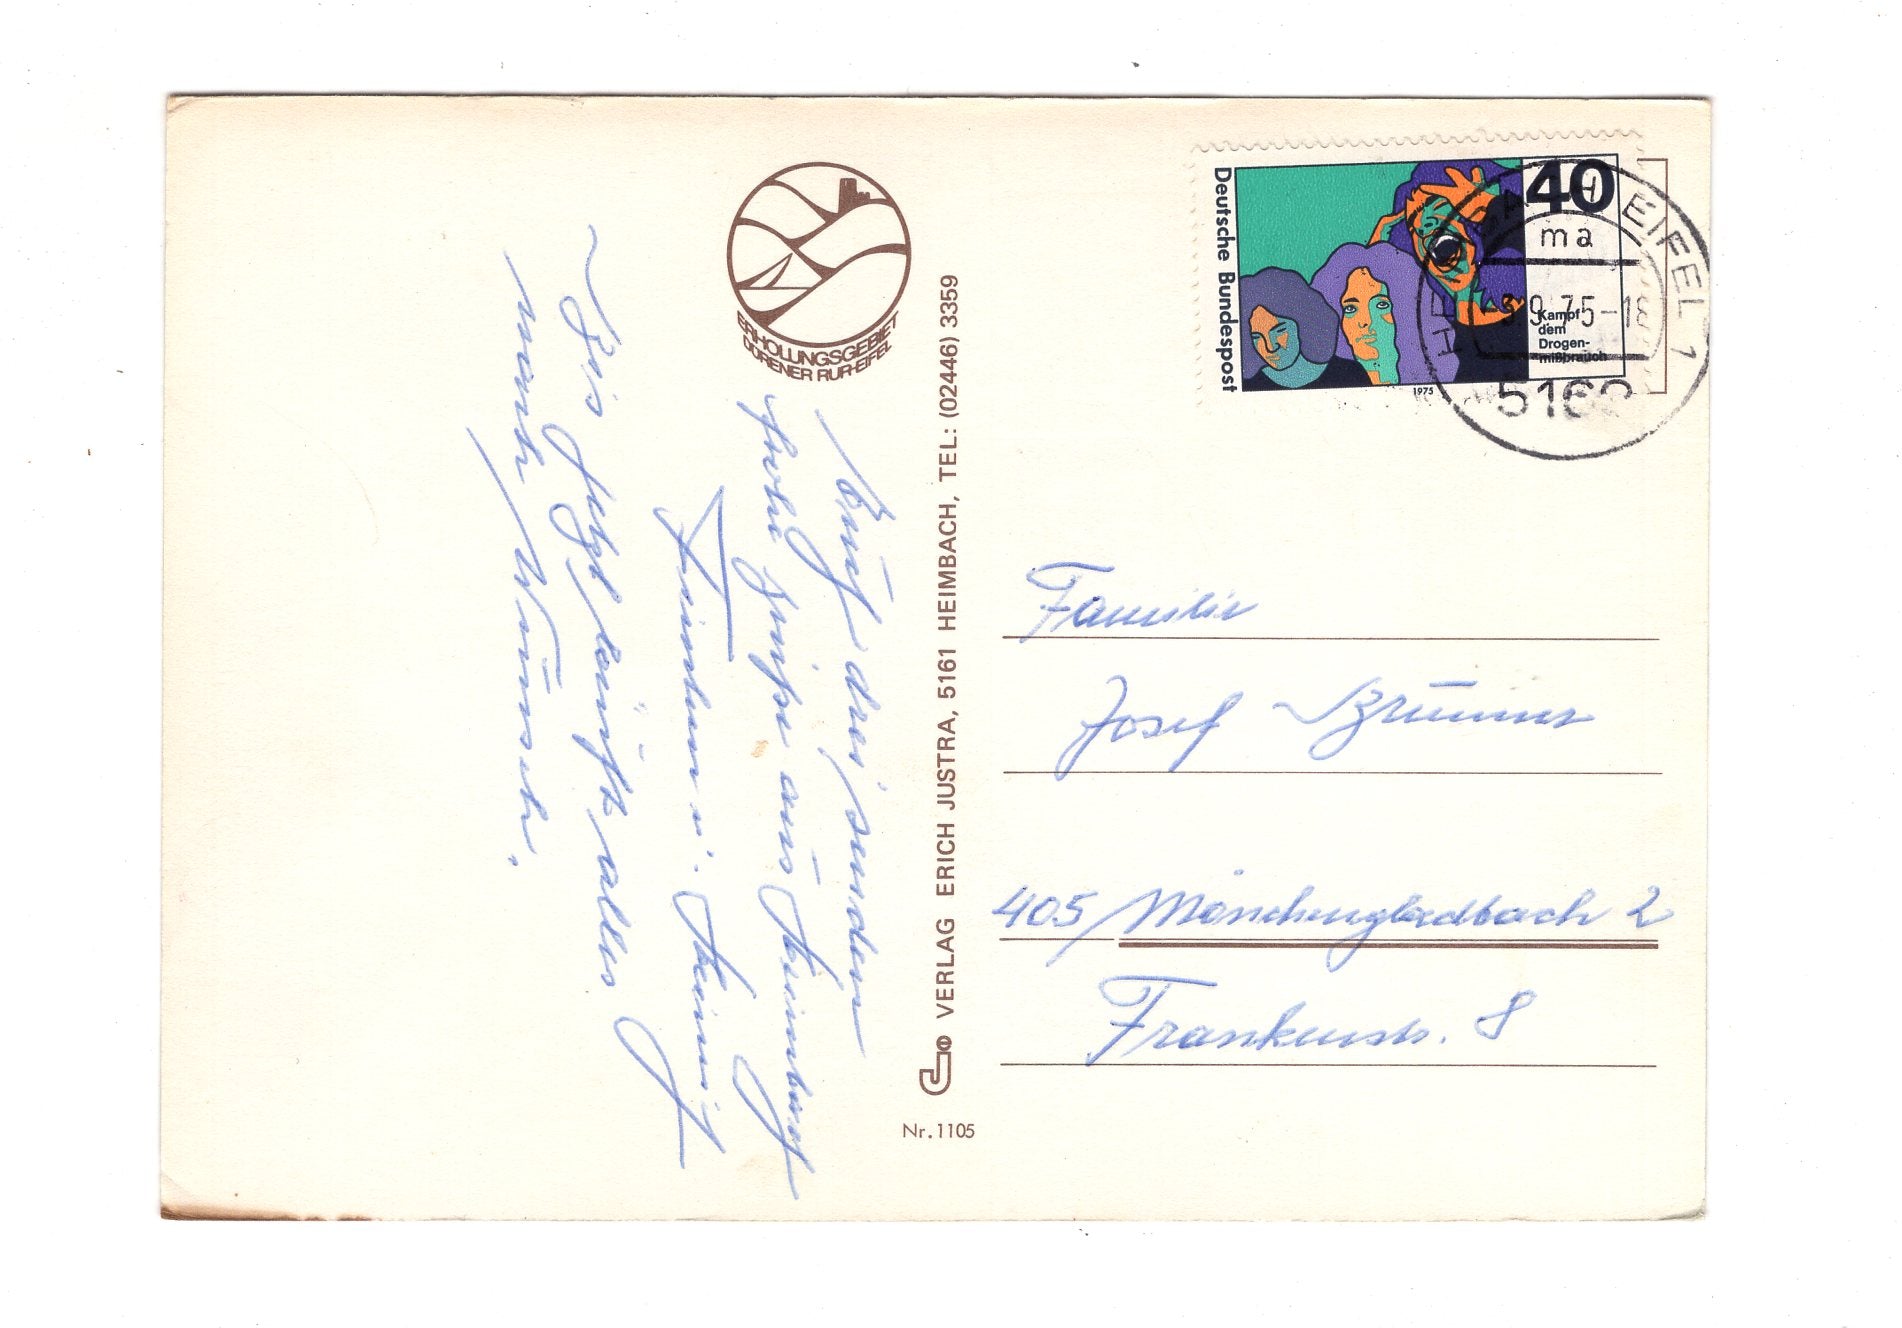 Euch drei senden
frohe Grüße aus Heimbach
Bis jetzt läuft alles
nach Wunsch.
ERHOLUNGSGEBIET
DÜRENER RUR-EIFEL
VERLAG ERICH JUSTRA, 5161 HEIMBACH, TEL: (02446) 3359
Nr. 1105
Deutsche Bundespost
40
Kampf
dem
Drogen-
mißbrauch
1975
HEIMBACH EIFEL 1
ma
9.75-18
516
Familie
Josef
405 Mönchengladbach 2
Frankenstr. 8